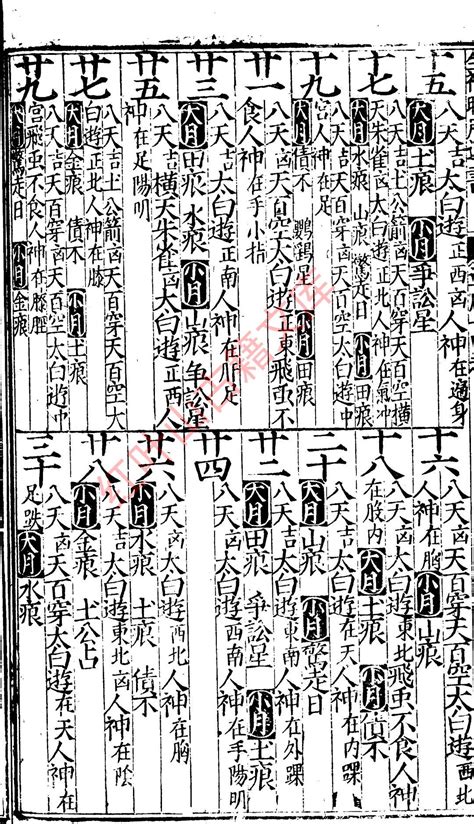 十五
八天吉太白遊凶人神在遍身
大月土痕 小月爭訟星
十七
八天吉土公箭凶天百穿天百空橫
天朱雀凶太白遊正西人神在氣冲
大月水痕 山痕 驚走日 小月田痕
十九
八天吉天百穿凶天百空太白遊中
宮人神在足
大月債不 鸚鵡星 小月田痕
廿一
八天凶天百空太白遊正東飛虫不
食人神在手小指
廿三
八天吉太白遊正南人神在肝足
大月田痕 水痕 小月山痕 爭訟星
廿五
八天吉橫天朱雀凶太白遊正西人
神在足陽明
廿七
八天吉土公箭凶天百穿天百空太
白遊正北人神在膝
大月金痕 債不 小月土痕
廿九
八天吉天百穿凶天百空太白遊中
宮飛虫不食人神在膝脛
大月驚走日 小月金痕
十六
八天凶天百穿太白遊西北
人神在胸 小月山痕
十八
八天凶太白遊東北飛虫不食人神
在股內 大月土痕 小月債不
二十
八天吉太白遊在天人神在內踝
大月山痕 小月驚走日
廿二
八天吉太白遊東南人神在外踝
大月田痕 爭訟星 小月土痕
廿四
八天凶太白遊西南人神在手陽明
廿六
八天凶太白遊西北人神在胸
小月水痕 土痕 債不
廿八
八天吉太白遊東北凶人神在陰
小月金痕 土公占
三十
八天凶天百穿太白遊在天人神在
足趺 大月水痕
红叶山古籍文库